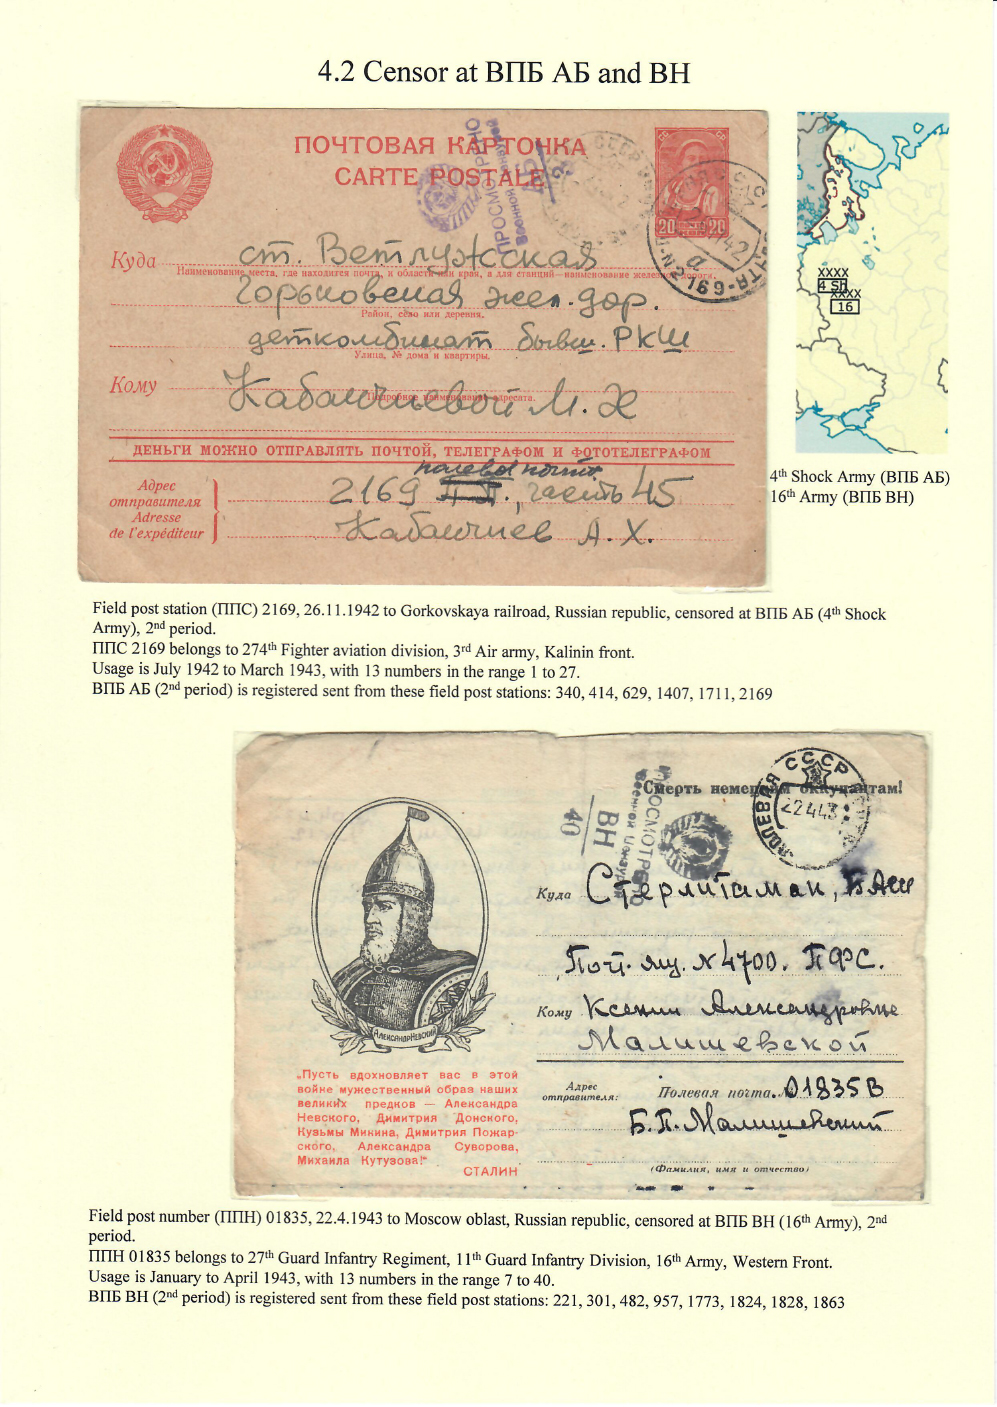 4.2 Censor at ВПБ АБ and ВН
ПОЧТОВАЯ КАРТОЧКА
CARTE POSTALE
ПРОСМОТРЕНО
Военной Цензурой
АБ
20 20
Куда ст. Ветлужская
Наименование места, где находится почта, и области или края, а для станций—наименование железной дороги.
Горьковская жел. дор.
Район, село или деревня.
деткомбинат бывш. РКШ
Улица, № дома и квартиры.
Кому
Подробное наименование адресата.
М. Х
ДЕНЬГИ МОЖНО ОТПРАВЛЯТЬ ПОЧТОЙ, ТЕЛЕГРАФОМ И ФОТОТЕЛЕГРАФОМ
полевая почта
Адрес отправителя 2169 П.П., часть 45
Adresse de l'expéditeur А. Х.
XXXX
4 Sh
XXXX
16
4th Shock Army (ВПБ АБ)
16th Army (ВПБ ВН)
Field post station (ППС) 2169, 26.11.1942 to Gorkovskaya railroad, Russian republic, censored at ВПБ АБ (4th Shock
Army), 2nd period.
ППС 2169 belongs to 274th Fighter aviation division, 3rd Air army, Kalinin front.
Usage is July 1942 to March 1943, with 13 numbers in the range 1 to 27.
ВПБ АБ (2nd period) is registered sent from these field post stations: 340, 414, 629, 1407, 1711, 2169
Смерть немецким оккупантам!
ПОЛЕВАЯ СССР ПОЧТА
22 4 43
ПРОСМОТРЕНО
Военной Цензурой
ВН
40
Куда Стерлитамак, БАСС
Поч. ящ. № 4700. ПФС.
Кому Ксении Александровне
Малишевской
АЛЕКСАНДР НЕВСКИЙ
„Пусть вдохновляет вас в этой
войне мужественный образ наших
великих предков — Александра
Невского, Димитрия Донского,
Кузьмы Минина, Димитрия Пожар-
ского, Александра Суворова,
Михаила Кутузова!“
СТАЛИН
Адрес отправителя: Полевая почта № 01835В
Б.П. Малишевский
(Фамилия, имя и отчество)
Field post number (ППН) 01835, 22.4.1943 to Moscow oblast, Russian republic, censored at ВПБ ВН (16th Army), 2nd
period.
ППН 01835 belongs to 27th Guard Infantry Regiment, 11th Guard Infantry Division, 16th Army, Western Front.
Usage is January to April 1943, with 13 numbers in the range 7 to 40.
ВПБ ВН (2nd period) is registered sent from these field post stations: 221, 301, 482, 957, 1773, 1824, 1828, 1863